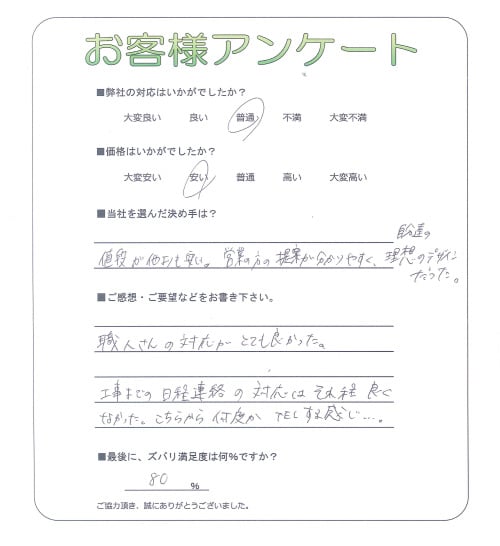 お客様アンケート
■弊社の対応はいかがでしたか？
大変良い 良い 普通 不満 大変不満
■価格はいかがでしたか？
大変安い 安い 普通 高い 大変高い
■当社を選んだ決め手は？
値段が他よりも安い。営業の方の提案が分かりやすく、
私達の
理想のデザイン
だった。
■ご感想・ご要望などをお書き下さい。
職人さんの対応がとても良かった。
工事までの日程連絡の対応はそれ程良く
なかった。こちらから何度かTELする感じ…。
■最後に、ズバリ満足度は何%ですか？
80 %
ご協力頂き、誠にありがとうございました。